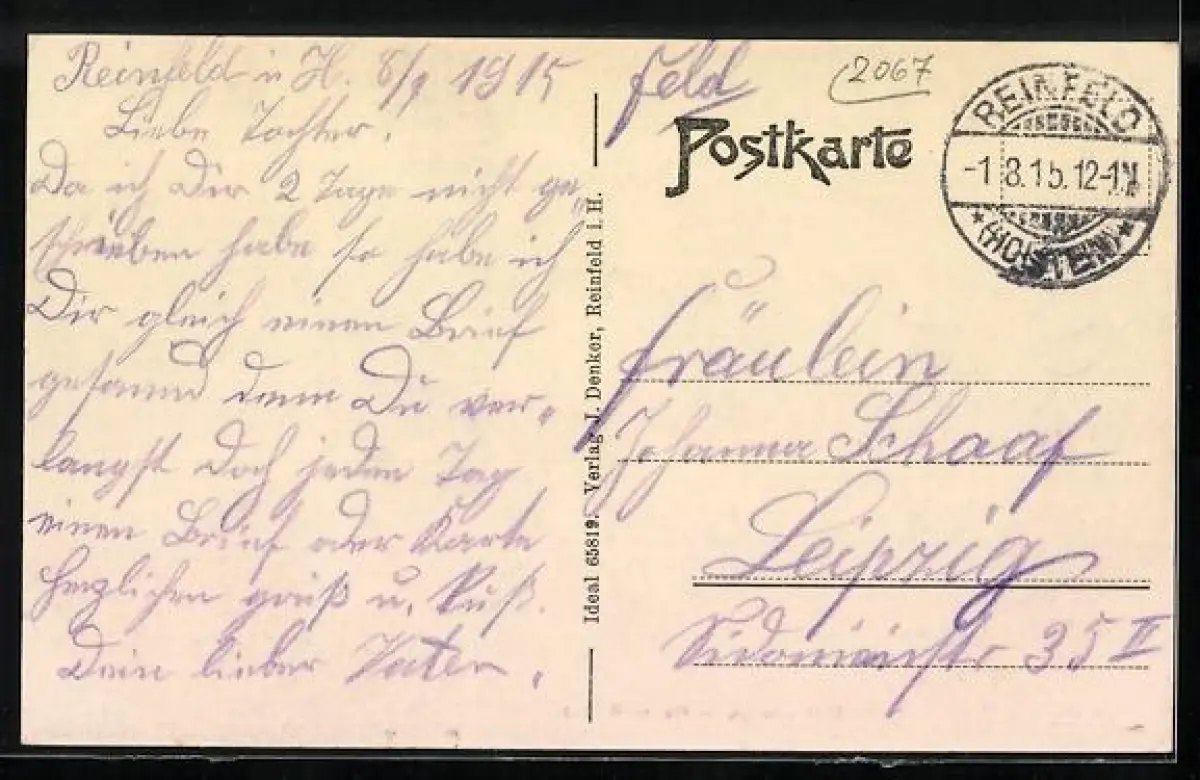 Reinfeld i H. 8/8 1915
Liebe Tochter.
Da ich Dir 2 Tage nicht ge„
schrieben habe so habe ich
Dir gleich einen Brief
gesannd denn Du ver„
langst doch jeden Tag
einen Brief oder Karte
Herzlichen gruß u. Kuß.
Dein lieber Vater.
Ideal 65819. Verlag J. Denker, Reinfeld i. H.
Feld
2067
Postkarte
REINFELD
-1 8.15. 12-1N
* (HOLSTEIN) *
Fräulein
Johanna Schaaf
Leipzig
35 II